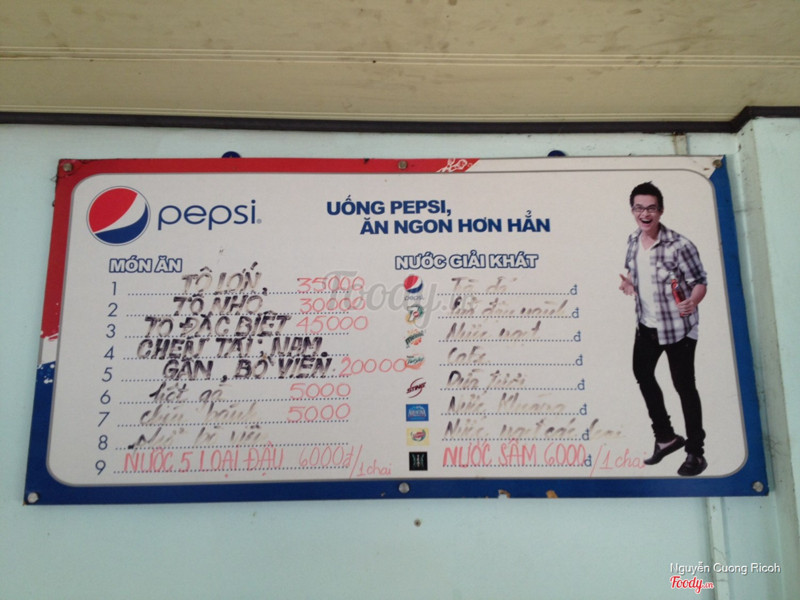 pepsi
UỐNG PEPSI,
ĂN NGON HƠN HẲN
MÓN ĂN
1 TÔ LỚN, 35000
2 TÔ NHỎ, 30000
3 TO ĐẶC BIỆT 45000
4 CHEN TÁI, NAM,
5 GÂN, BÒ VIÊN 20000
6 tiết gà 5000
7 bánh 5000
8
9 NƯỚC 5 LOẠI ĐẬU 6000đ/1chai
NƯỚC GIẢI KHÁT
Trà đá đ
đậu nành đ
Nước ngọt đ
Cafe đ
Dừa tươi đ
Nước Khoáng đ
Nước ngọt các loại
NƯỚC SÂM 6000đ/1chai
Foody.vn
Nguyễn Cuong Ricoh
Foody.vn